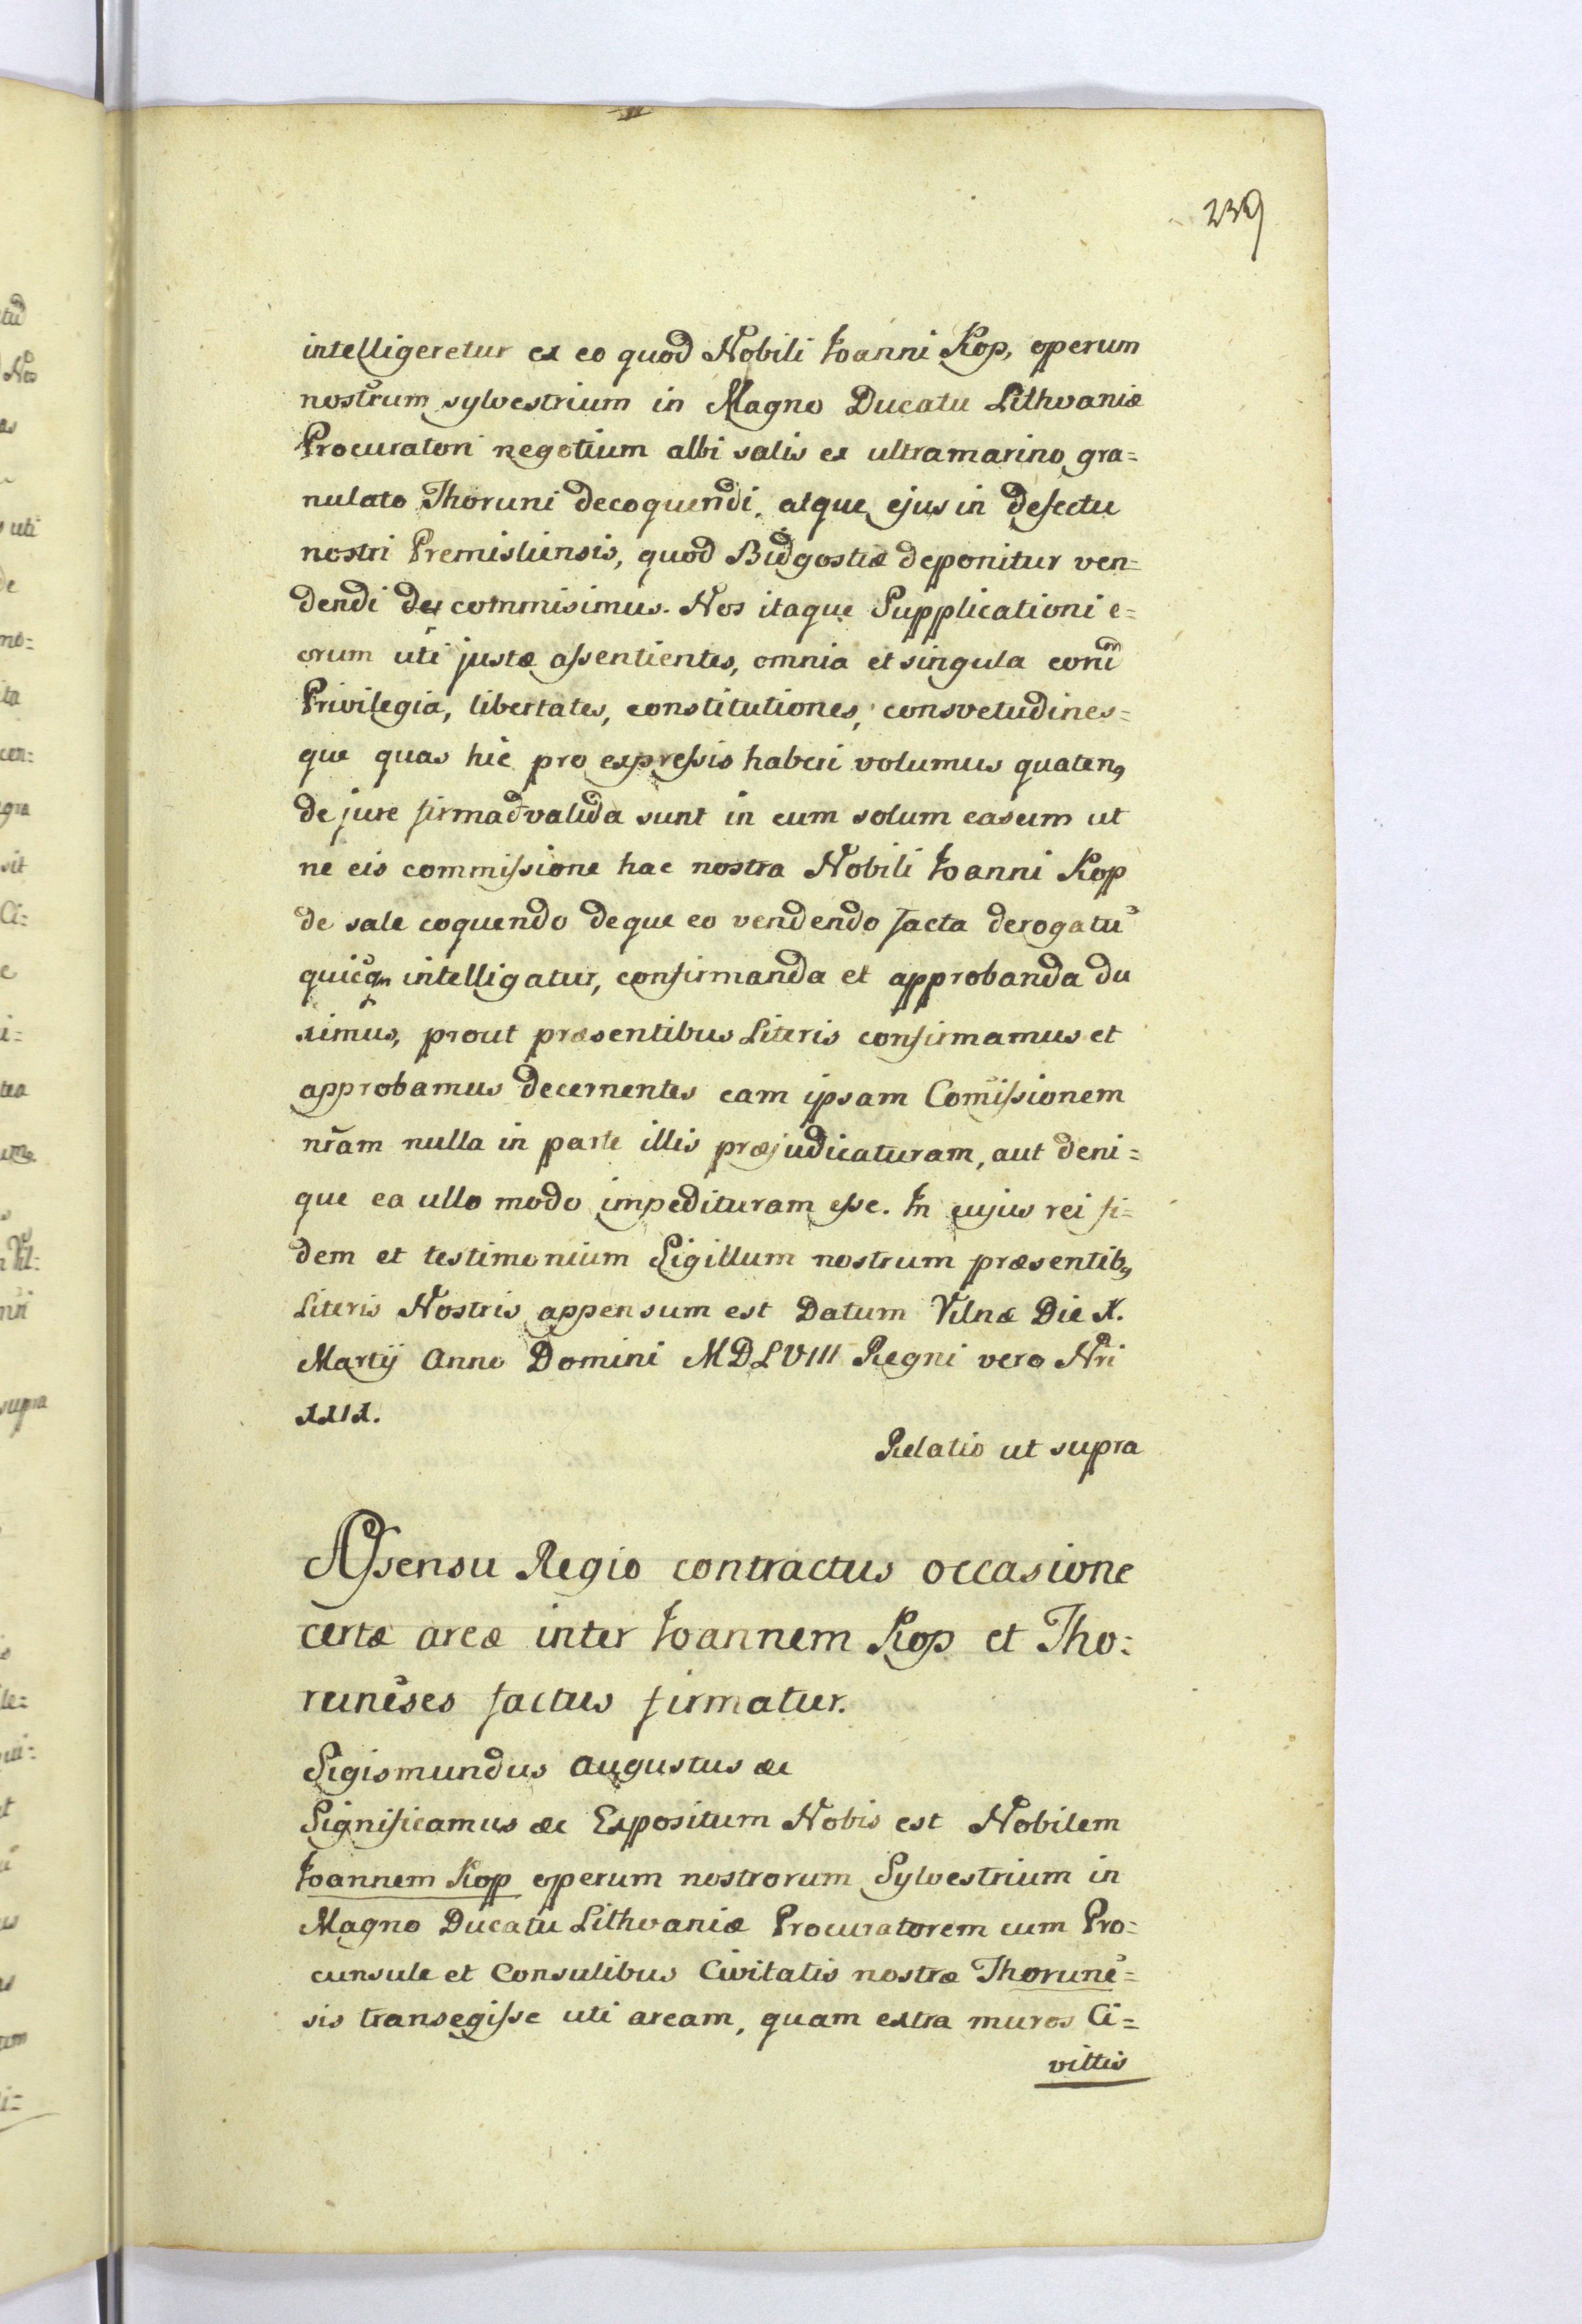 239
intelligeretur ex eo quod Nobili Ioanni Kop, operum
nostrum sylvestrium in Magno Ducatu Lithvaniæ
Procuratori negotium albi salis ex ultramarino gra=
nulato Thoruni decoquendi, atque ejus in defectu
nostri Premisliensis, quod Bidgostiæ deponitur ven=
dendi commisimus. Nos itaque Supplicationi e=
orum uti justæ assentientes, omnia et singula eorū
Privilegia, libertates, constitutiones, consvetudines=
que quas hic pro expressis haberi volumus quaten9
de jure firma valida sunt in eum solum casum ut
ne eis commissione hac nostra Nobili Ioanni Kop
de sale coquendo deque eo vendendo facta derogatū
quicq̄m intelligatur, confirmanda et approbanda du
ximus, prout præsentibus Literis confirmamus et
approbamus decernentes eam ipsam Com̄issionem
nr̄am nulla in parte illis præjudicaturam, aut deni=
que ea ullo modo impedituram esse. In cujus rei fi=
dem et testimonium Sigillum nostrum præsentib9
Literis Nostris appensum est Datum Vilnæ Die X.
Martij Anno Domini MDLVIII Regni vero Nri
XXIX.
Relatio ut supra
Assensu Regio contractus occasione
certæ areæ inter Ioannem Kop et Tho=
runēses factus firmatur.
Sigismundus Augustus &c
Significamus &c Expositum Nobis est Nobilem
Ioannem Kop operum nostrorum Sylvestrium in
Magno Ducatu Lithvaniæ Procuratorem cum Pro=
cunsule et Consulibus Civitatis nostræ Thorunē=
sis transegisse uti aream, quam extra muros Ci=
vittis